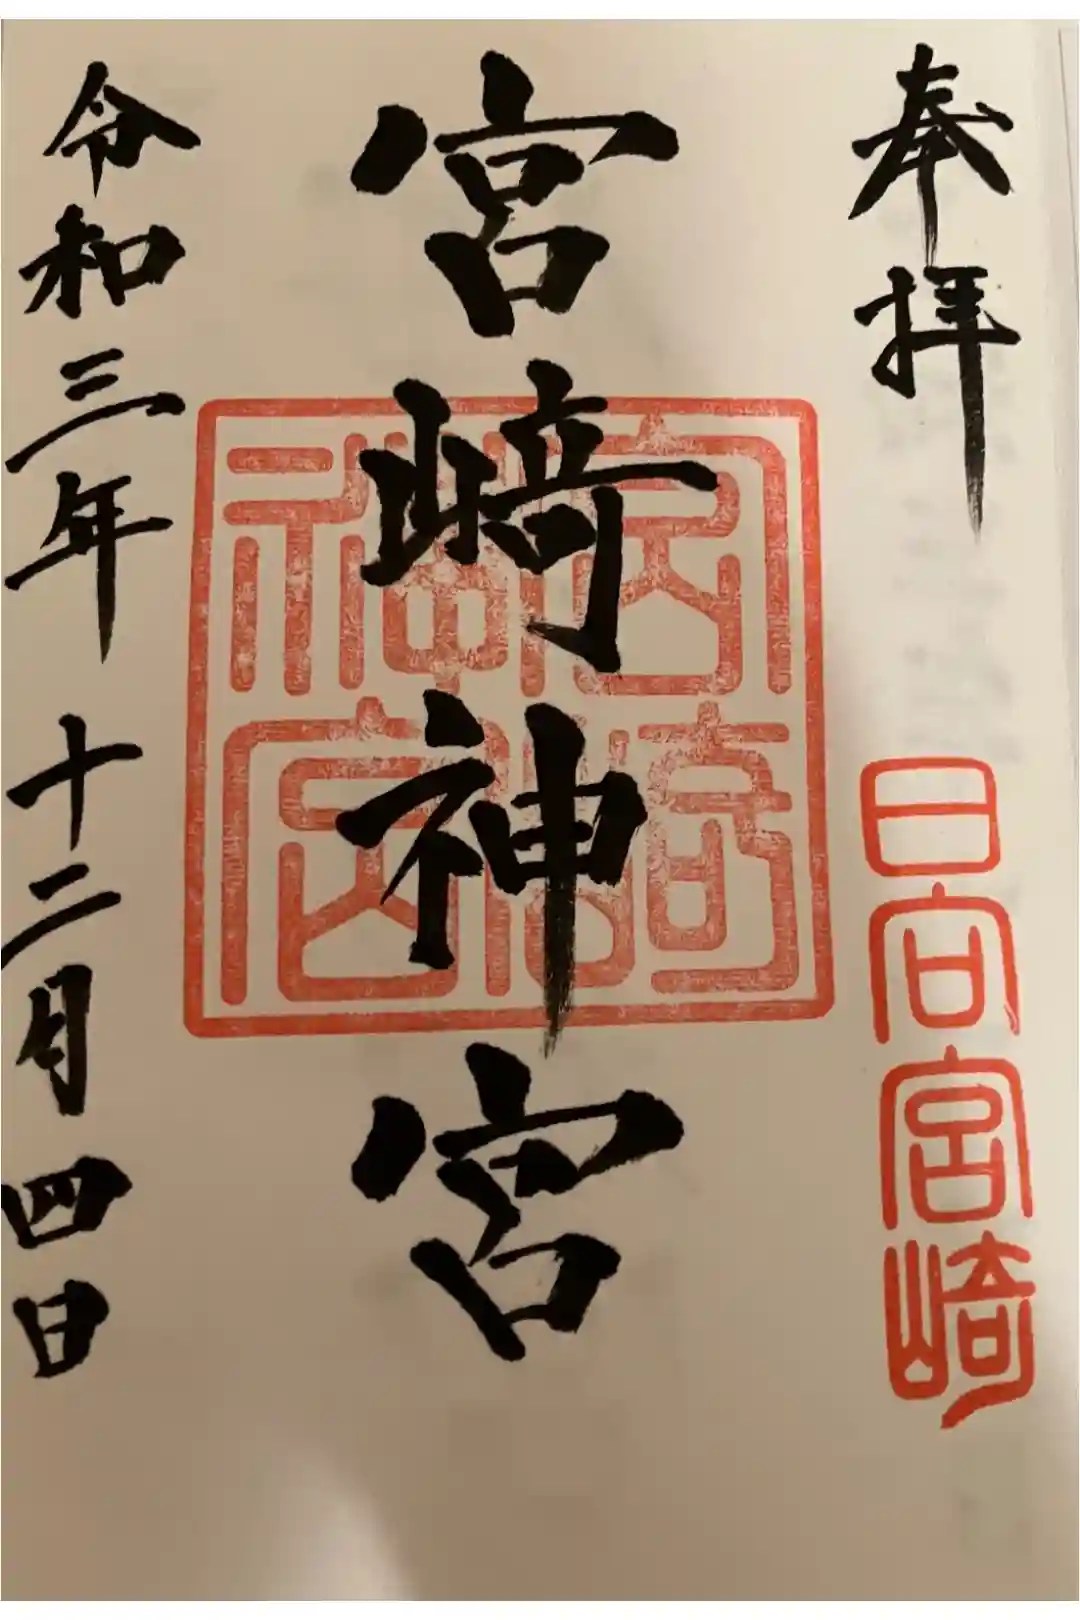 奉拝
日向宮崎
宮﨑神宮
宮崎神宮
令和三年 十二月四日